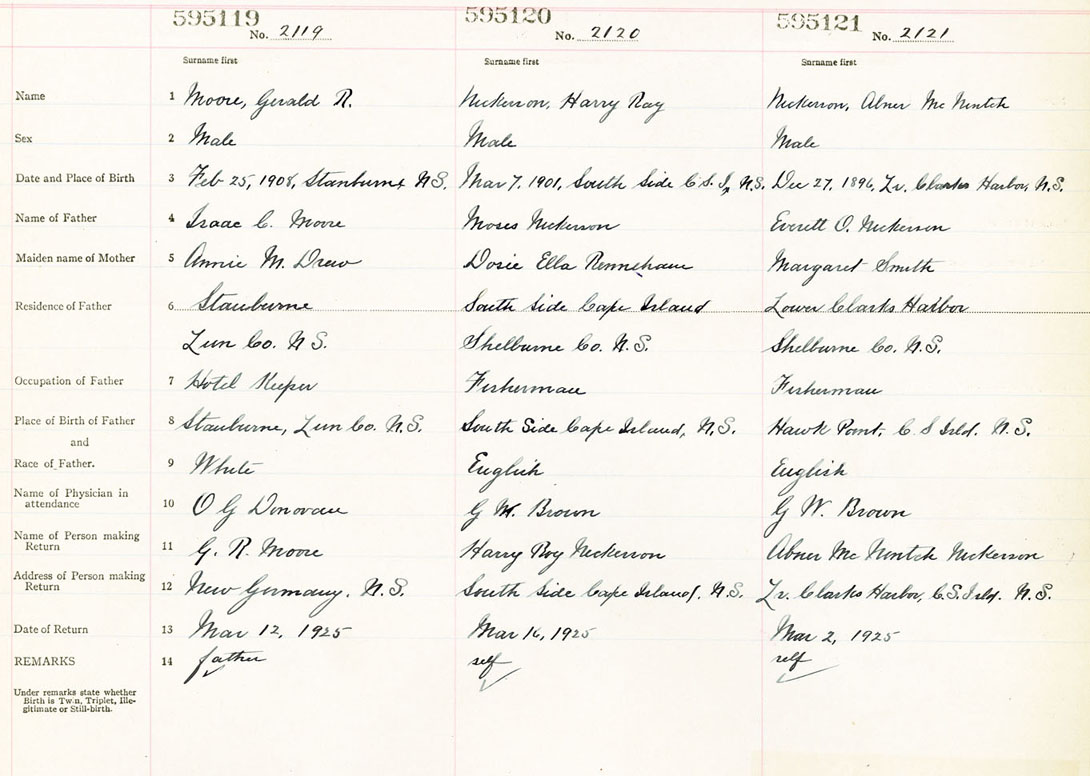 595119 595120 595121
No. 2119 No. 2120 No. 2121
Surname first Surname first Surname first
Name 1 Moore, Gerald R. Nickerson, Harry Ray Nickerson, Abner Mc Nintch
Sex 2 Male Male Male
Date and Place of Birth 3 Feb 25, 1908, Stanburne N.S. Mar 7, 1901, South Side C.S.I, N.S. Dec 27, 1896, Lr. Clarks Harbor, N.S.
Name of Father 4 Isaac C. Moore Moses Nickerson Everett O. Nickerson
Maiden name of Mother 5 Annie M. Drew Dosie Ella Margaret Smith
Residence of Father 6 Stanburne South Side Cape Island Lower Clarks Harbor
Lun Co. N S. Shelburne Co. N.S. Shelburne Co. N.S.
Occupation of Father 7 Hotel Keeper Fisherman Fisherman
Place of Birth of Father 8 Stanburne, Lun Co. N.S. South Side Cape Island, N.S. Hawk Point, C. S Isld. N.S.
and
Race of Father. 9 White English English
Name of Physician in
attendance 10 O G Donovan G W. Brown G W. Brown
Name of Person making
Return 11 G. R. Moore Harry Roy Nickerson Abner Mc Nintch Nickerson
Address of Person making
Return 12 New Germany, N.S. South Side Cape Island, N.S. Lr. Clarks Harbor, C.S. Isld. N.S.
Date of Return 13 Mar 12, 1925 Mar 16, 1925 Mar 2, 1925
REMARKS 14 father self self
Under remarks state whether
Birth is Twin, Triplet, Ille-
gitimate or Still-birth.